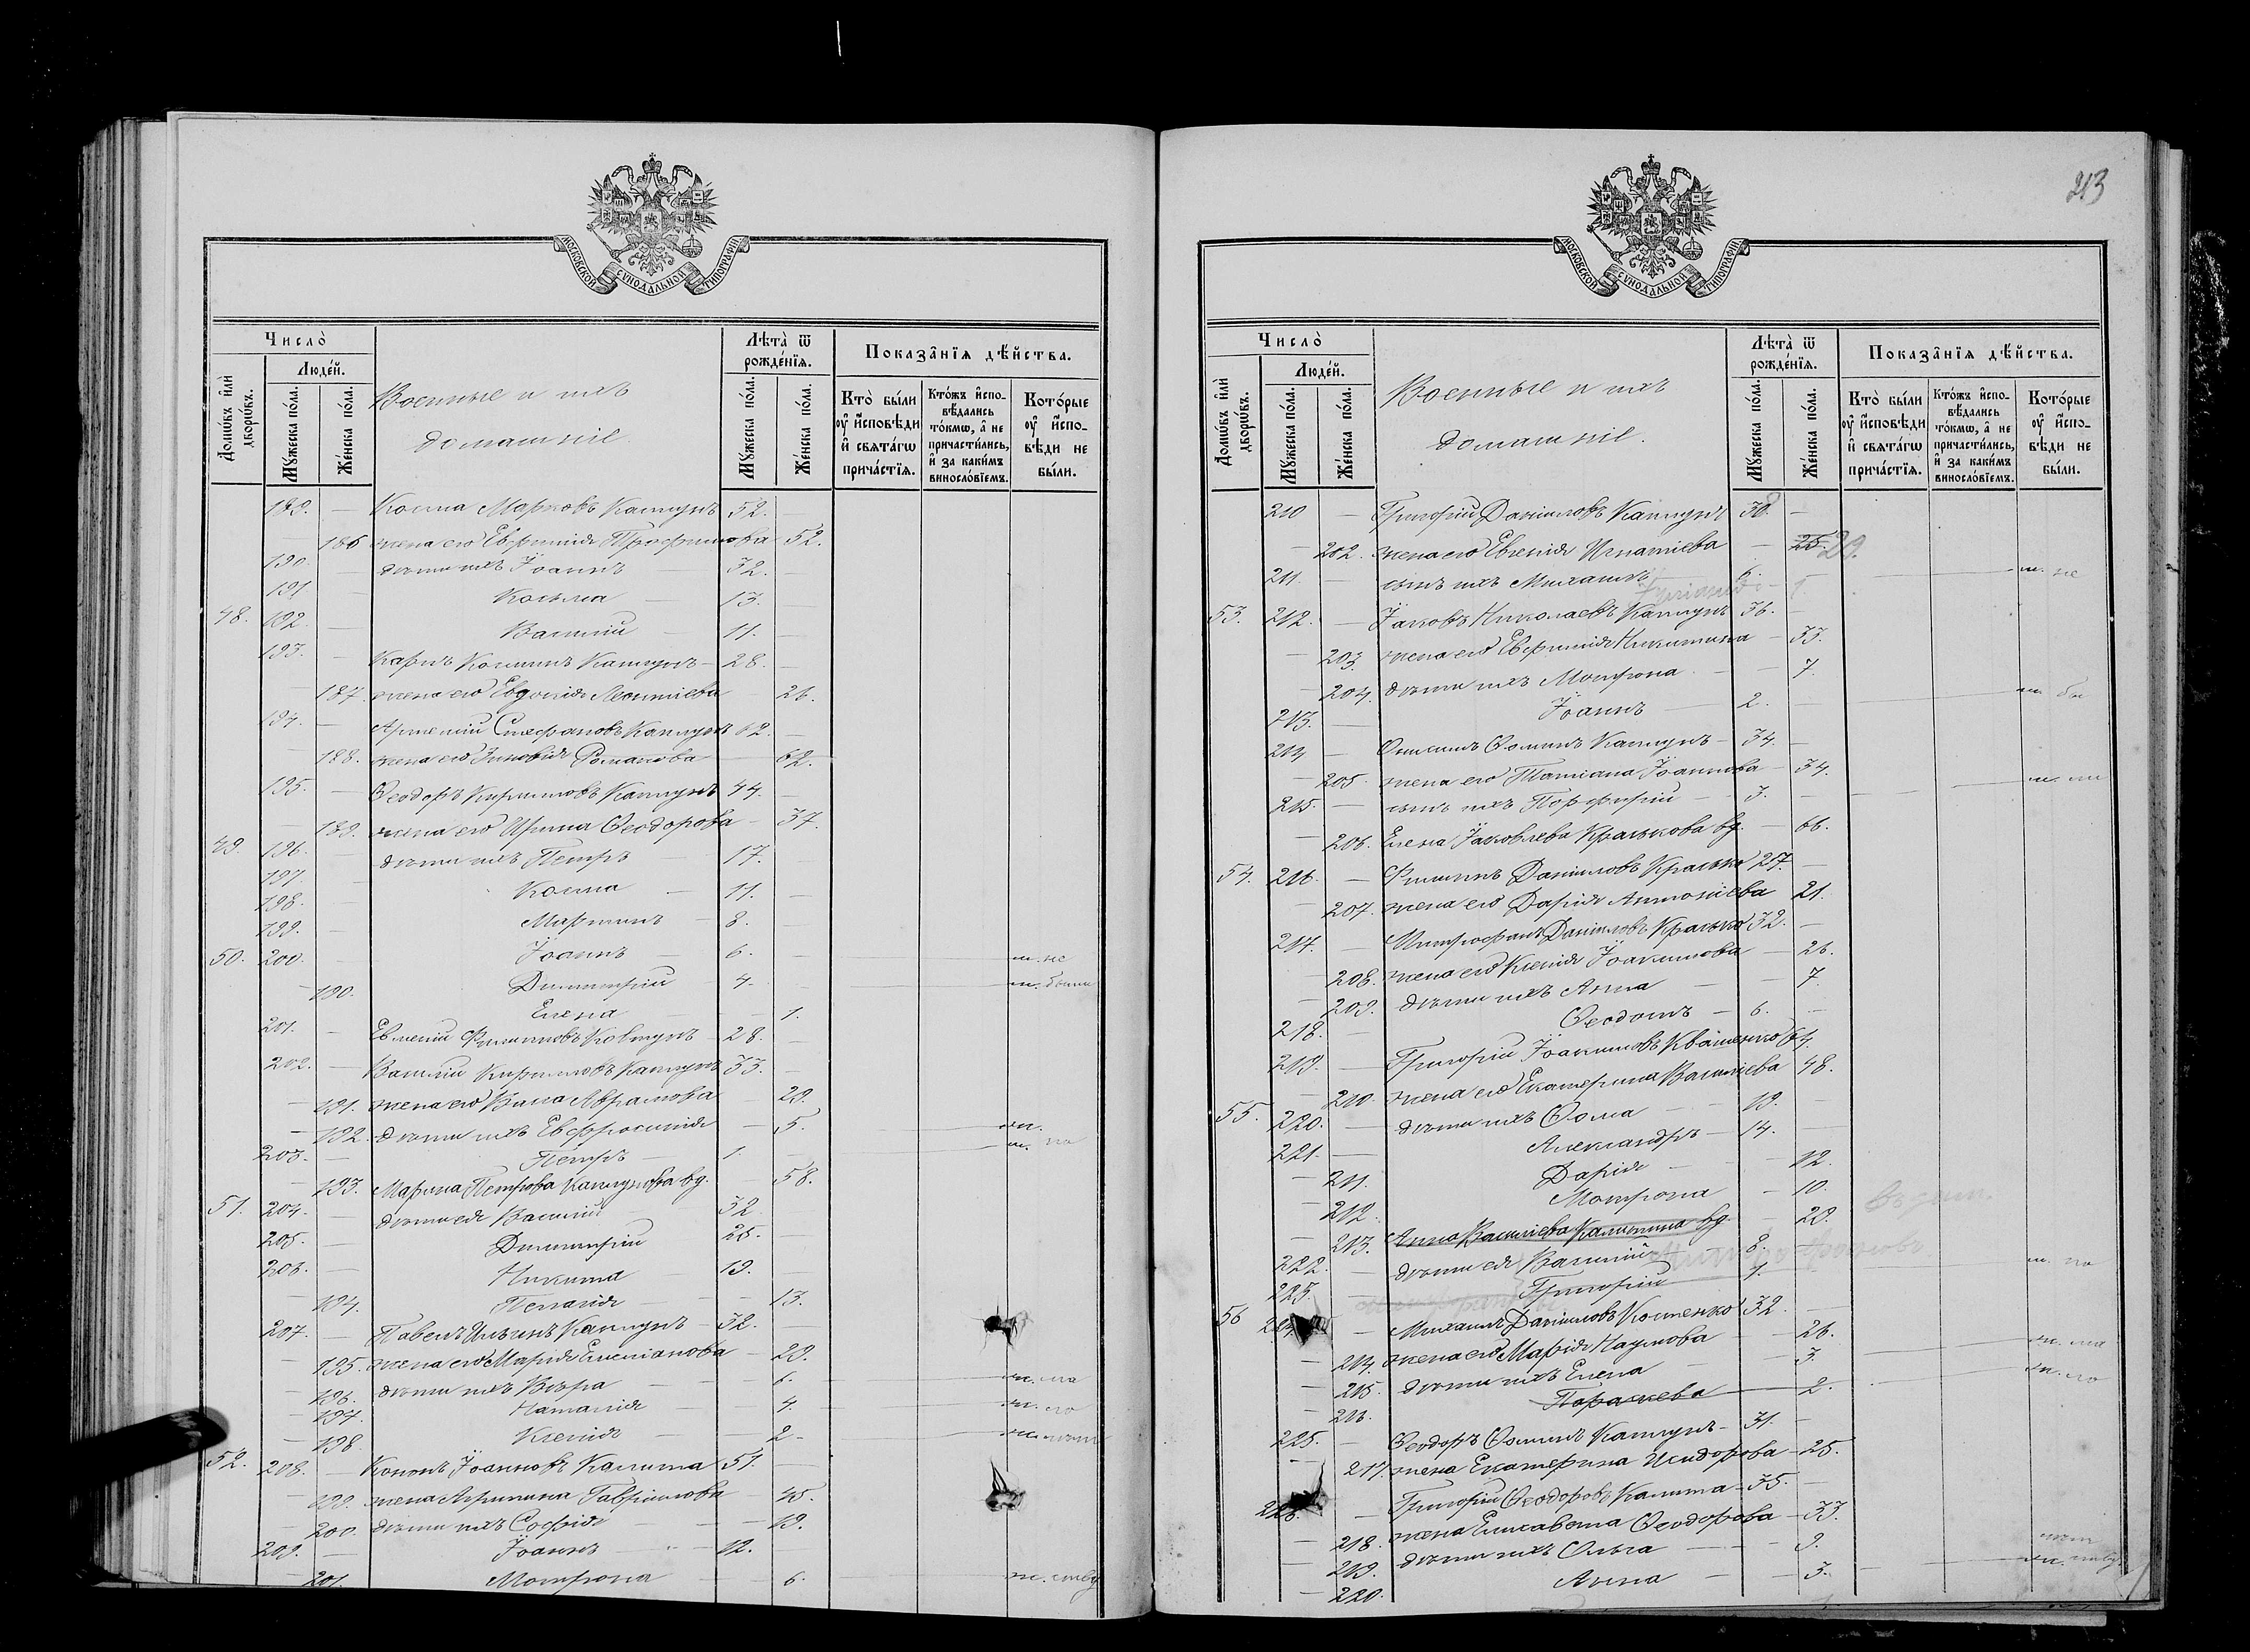 213
МОСКОВСКОЙ СѴНОДАЛЬНОЙ ТИПОГРАФІИ
Число̀
Людє́й.
Домѡ́въ и҆лѝ дворѡ́въ.
Мꙋ́жеска по́ла.
Же́нска по́ла.
Военные и ихъ
домашніе
Лѣта̀ ѿ рожде́нїѧ.
Мꙋ́жеска по́ла.
Же́нска по́ла.
Показа̑нїѧ дѣ́йства.
Кто̀ бы́ли ᲂу҆ и҆́сповѣди и҆ свѧта́гѡ прича́стїѧ.
Кто́жъ и҆сповѣ́дались то́кмѡ, а҆ не причасти́лись, и҆ за каки́мъ винослО́вїемъ.
Кото́рые ᲂу҆ и҆́сповѣди не бы́ли.
189. — Косма Марковъ Каплунъ 52. —
— 186 жена его Евфимія Трофимова 52.
190. — дѣти ихъ Іоаннъ — 32.
191 — Косьма — 13. —
48. 192. — Василій — 11. —
193. — Карпъ Косминъ Каплунъ — 28. —
— 187. жена его Евдокія Леонтіева — 26.
194. — Артемій Стефановъ Каплунъ 62. —
— 188. жена его Зиновія Романова — 62.
195. — Ѳеодоръ Кирилловъ Каплунъ 44. —
— 189. жена его Ирина Ѳеодорова — 37.
49. 196. — дѣти ихъ Петръ — 17.
197. — Косма — 11. —
198. — Мартинъ — 8. —
199. — Іоаннъ — 6. — м. не
50. 200. — Димитрій — 4. — м. были
— 190. Елена — — 1.
201. — Евменій Филипповъ Ковтунъ — 28. —
202. — Василій Кирилловъ Каплунъ 33. —
— 191. жена его Васса Аврамова — 29.
— 192. дѣти ихъ Евфросинія — 5. м.
203. — Петръ — 1. — м. по
— 193. Марина Петрова Каплунова вд. — 58.
51. 204. — дѣти ея Василій — 32
205. — Димитрій — 25. —
206. — Никита — 19. —
— 194. Пелагія — — 13.
207. — Павелъ Ильинъ Каплунъ — 32. —
— 195. жена его Марія Емеліанова — 29.
— 196. дѣти ихъ Вѣра — 6. м. ма
— 197. Наталія — 4. м. ло
— 198. Ксенія — 2 — м. лѣт
52. 208. — Кононъ Іоанновъ Калита 51. —
— 199. жена Агрипина Гавріилова — 45.
— 200. дѣти ихъ Софія — — 19.
209. — Іоаннъ — 12.
— 201. Матрона — 6. м. ству
МОСКОВСКОЙ СѴНОДАЛЬНОЙ ТИПОГРАФІИ
Число̀
Людє́й.
Домѡ́въ и҆лѝ дворѡ́въ.
Мꙋ́жеска по́ла.
Же́нска по́ла.
Военные и ихъ
домашніе.
Лѣта̀ ѿ рожде́нїѧ.
Мꙋ́жеска по́ла.
Же́нска по́ла.
Показа̑нїѧ дѣ́йства.
Кто̀ бы́ли ᲂу҆ и҆́сповѣди и҆ свѧта́гѡ прича́стїѧ.
Кто́жъ и҆сповѣ́дались то́кмѡ, а҆ не причасти́лись, и҆ за каки́мъ винослО́вїемъ.
Кото́рые ᲂу҆ и҆́сповѣди не бы́ли.
210 — Григорій Даніиловъ Каплунъ 30. —
— 202. жена его Евгенія Игнатіева — 25. 29.
211. — сынъ ихъ Михаилъ — 6. — м. не
53. 212. — Іаковъ Николаевъ Каплунъ 36. —
— 203. жена его Евфимія Никитина — 33.
— 204. дѣти ихъ Мотрона — — 7.
213. — Іоаннъ — 2. — м. бы
214 — Онисимъ Ѳоминъ Каплунъ — 34. —
— 205. жена его Татіана Іоаннова — 34.
215. — сынъ ихъ Порфирій — 3. — м. ли
— 206. Елена Іаковлева Кралькова вд. — 66.
54. 216. — Филиппъ Даніиловъ Кралько 27. —
— 207. жена его Дарія Антоніева — 21.
217. — Митрофанъ Даніиловъ Кралько 32. —
— 208. жена его Ксенія Іоакимова — 26.
— 209. дѣти ихъ Анна — — 7.
218. — Ѳеодотъ — 6. —
219. — Григорій Іоакимовъ Квашенко 64.
— 210. жена его Екатерина Василіева 48.
55. 220. — дѣти ихъ Ѳома — 19. —
221. — Александръ — 14. —
— 211. Дарія — — 12.
— 212. Мотрона — 10.
— 213. Анна Василіева Калитина вд. — 29.
222. — дѣти ея Василій — 8. —
223. — Григорій — 1. — м. по
56 224. — Михаилъ Даніиловъ Костенко 32. —
— 214. жена его Марія Наумова — 26.
— 215. дѣти ихъ Елена — 3. м. ма
— 216. Параскева — 2. м. ло
225. — Ѳеодоръ Ѳоминъ Каплунъ — 31. —
— 217. жена Екатерина Исидорова — 25.
226. — Григорій Ѳеодоровъ Калита — 35. —
— 218. жена Елисавета Ѳеодорова — 33.
— 219. дѣти ихъ Ольга — — 9.
— 220. Анна — — 3. м. ству